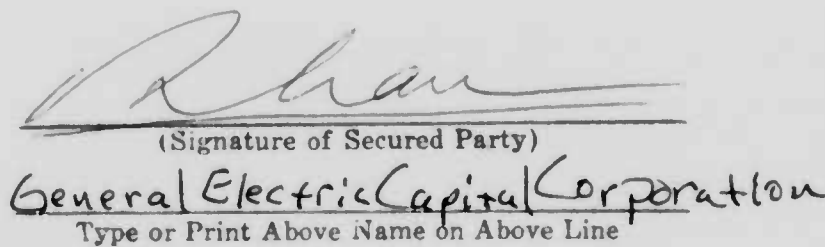 (Signature of Secured Party)
General Electric Capital Corporation
Type or Print Above Name on Above Line